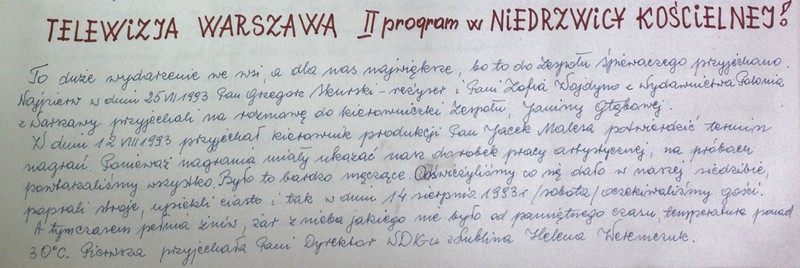 TELEWIZJA WARSZAWA II program w NIEDRZWICY KOŚCIELNEJ!
To duże wydarzenie we wsi, a dla nas największe, bo to do Zespołu Śpiewaczego przyjechano.
Najpierw w dniu 25 VII 1993 Pan Grzegorz Skurski - reżyser i Pani Zofia Wojdyno z Wydawnictwa Polonia
z Warszawy przyjechali na rozmowę do kierowniczki Zespołu, Janiny Głąbowej.
W dniu 12 VIII 1993 przyjechał kierownik produkcji Pan Jacek Malesa potwierdzić termin
nagrań. Ponieważ nagrania miały ukazać nasz dorobek pracy artystycznej, na próbach
powtarzaliśmy wszystko. Było to bardzo męczące. Odświeżyliśmy co się dało w naszej siedzibie,
poprali stroje, upiekli ciasto i tak w dniu 14 sierpnia 1993 r /sobota/ oczekiwaliśmy gości.
A tymczasem pełnia żniw, żar z nieba jakiego nie było od pamiętnego czasu, temperatura ponad
30°C. Pierwsza przyjechała Pani Dyrektor WDK-u z Lublina Helena Weremczuk.